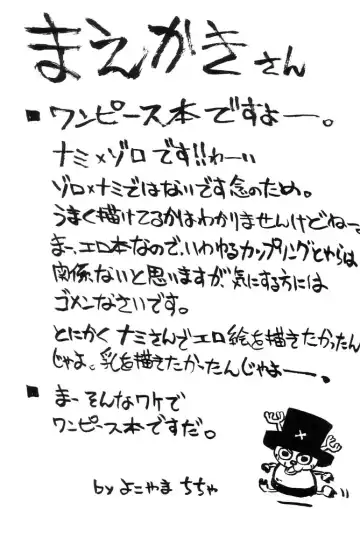 まえがきさん
■ワンピース本ですよー。
ナミ×ゾロです!!わーい
ゾロ×ナミではないです念のため。
うまく描けてるかはわかりませんけどねー。
まー、エロ本なので、いわゆるカップリングとやらは
関係ないと思いますが、気にする方には
ゴメンなさいです。
とにかくナミさんでエロ絵を描きたかったん
じゃよ。乳を描きたかったんじゃよー。
■まーそんなワケで
ワンピース本ですだ。
by よこやま ちちゃ